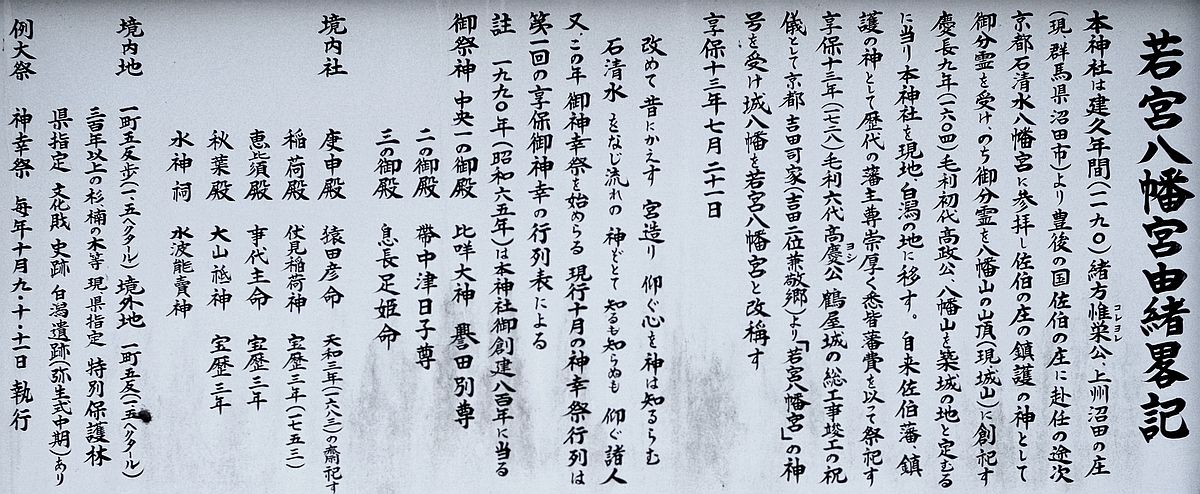 若宮八幡宮由緒畧記
本神社は建久年間(一一九〇)緒方惟栄公上州沼田の庄
コレヨシ
(現、群馬県沼田市)より豊後の国佐伯の庄に赴任の途次
京都石清水八幡宮に参拝し佐伯の庄の鎮護の神として
御分霊を受け、のち御分霊を八幡山の山頂(現城山)に創祀す
慶長九年(一六〇四)毛利初代高政公、八幡山を築城の地と定むる
に当り本神社を現地白潟の地に移す。自来佐伯藩、鎮
護の神として歴代の藩主尊崇厚く悉皆藩費を以って祭祀す
享保十三年(一七二八)毛利六代高慶公鶴屋城の総工事竣工の祝
ヨシ
儀として京都吉田司家(吉田二位兼敬郷)より「若宮八幡宮」の神
号を受け城八幡を若宮八幡宮と改稱す
享保十三年七月二十一日
改めて昔にかえす宮造り仰ぐ心を神は知るらむ
石清水をなじ流れの神ぞとて知るも知らぬも仰ぐ諸人
又、この年御神幸祭を始めらる現行十月の神幸祭行列は
第一回の享保御神幸の行列表による
註 一九九〇年(昭和六五年)は本神社御創建八百年に当る
御祭神 中央一の御殿 比咩大神 誉田別尊
二の御殿 帶中津日子尊
三の御殿 息長足姫命
境内社 庚申殿 猿田彦命 天和三年(一六八三)の齋祀す
稲荷殿 伏見稲荷神 宝歴三年(一七五三)
恵比須殿 事代主命 宝歴三年
秋葉殿 大山祇神 宝歴三年
水神祠 水波能賣神
境内地 一町五反歩(一・五ヘクタール)境外地 一町五反(一・五ヘクタール)
三百年以上の杉、楠の木等現県指定 特別保護林
県指定 文化財 史跡 白潟遺跡(弥生式中期)あり
例大祭 神幸祭 毎年十月九・十・十一日執行